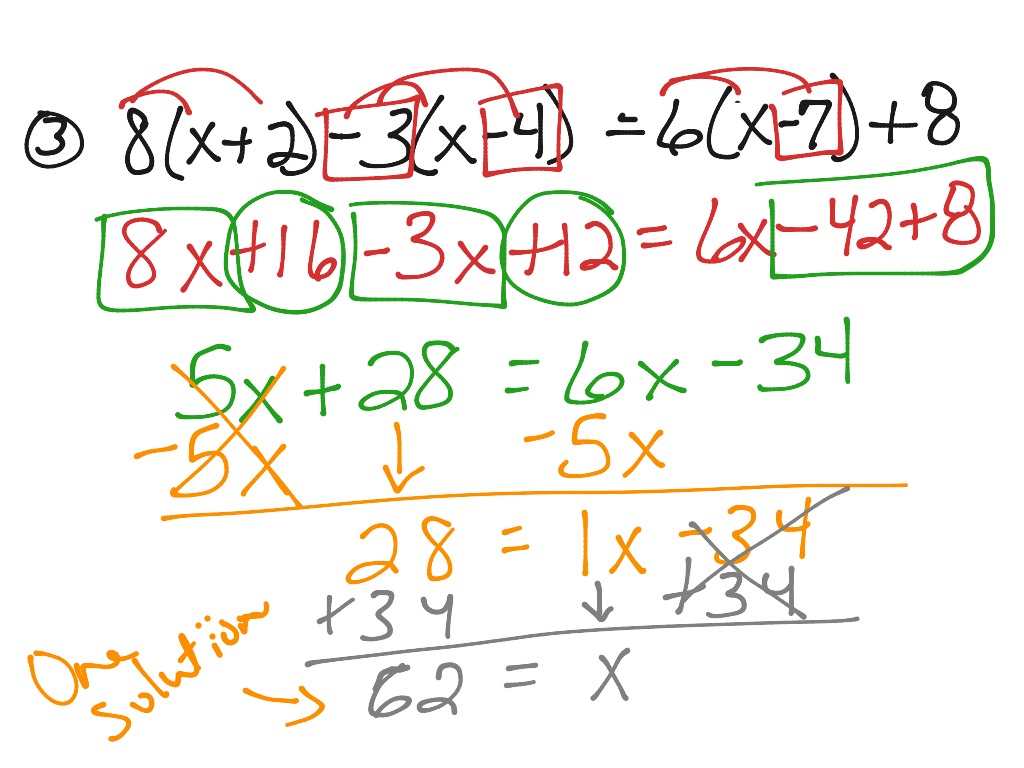 ③ 8(x+2)-3(x-4) = 6(x-7)+8
8x+16-3x+12 = 6x-42+8
5x+28 = 6x-34
-5x -5x
28 = 1x-34
+34 +34
62 = x
One solution